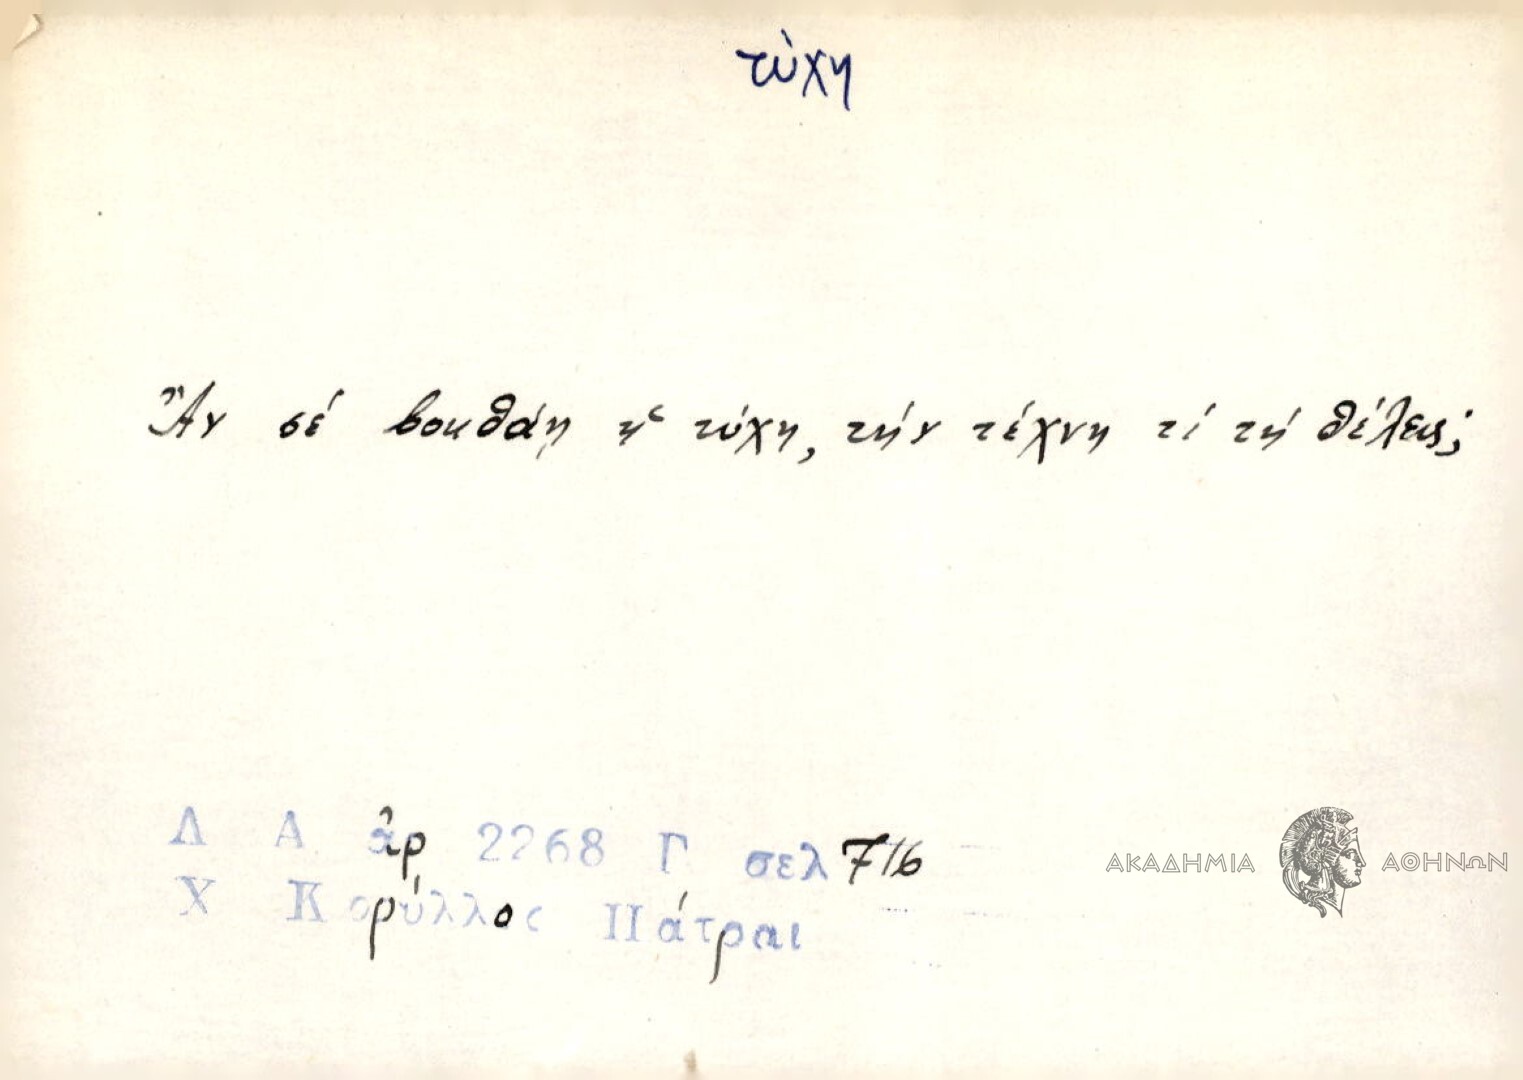 τύχη
Ἂν σέ βοηθάῃ ἡ τύχη, τήν τέχνη τί τή θέλεις;
Λ Α ἀρ 2268 Γ σελ 716
Χ Κορύλλος Πάτραι
ΑΚΑΔΗΜΙΑ ΑΘΗΝΩΝ